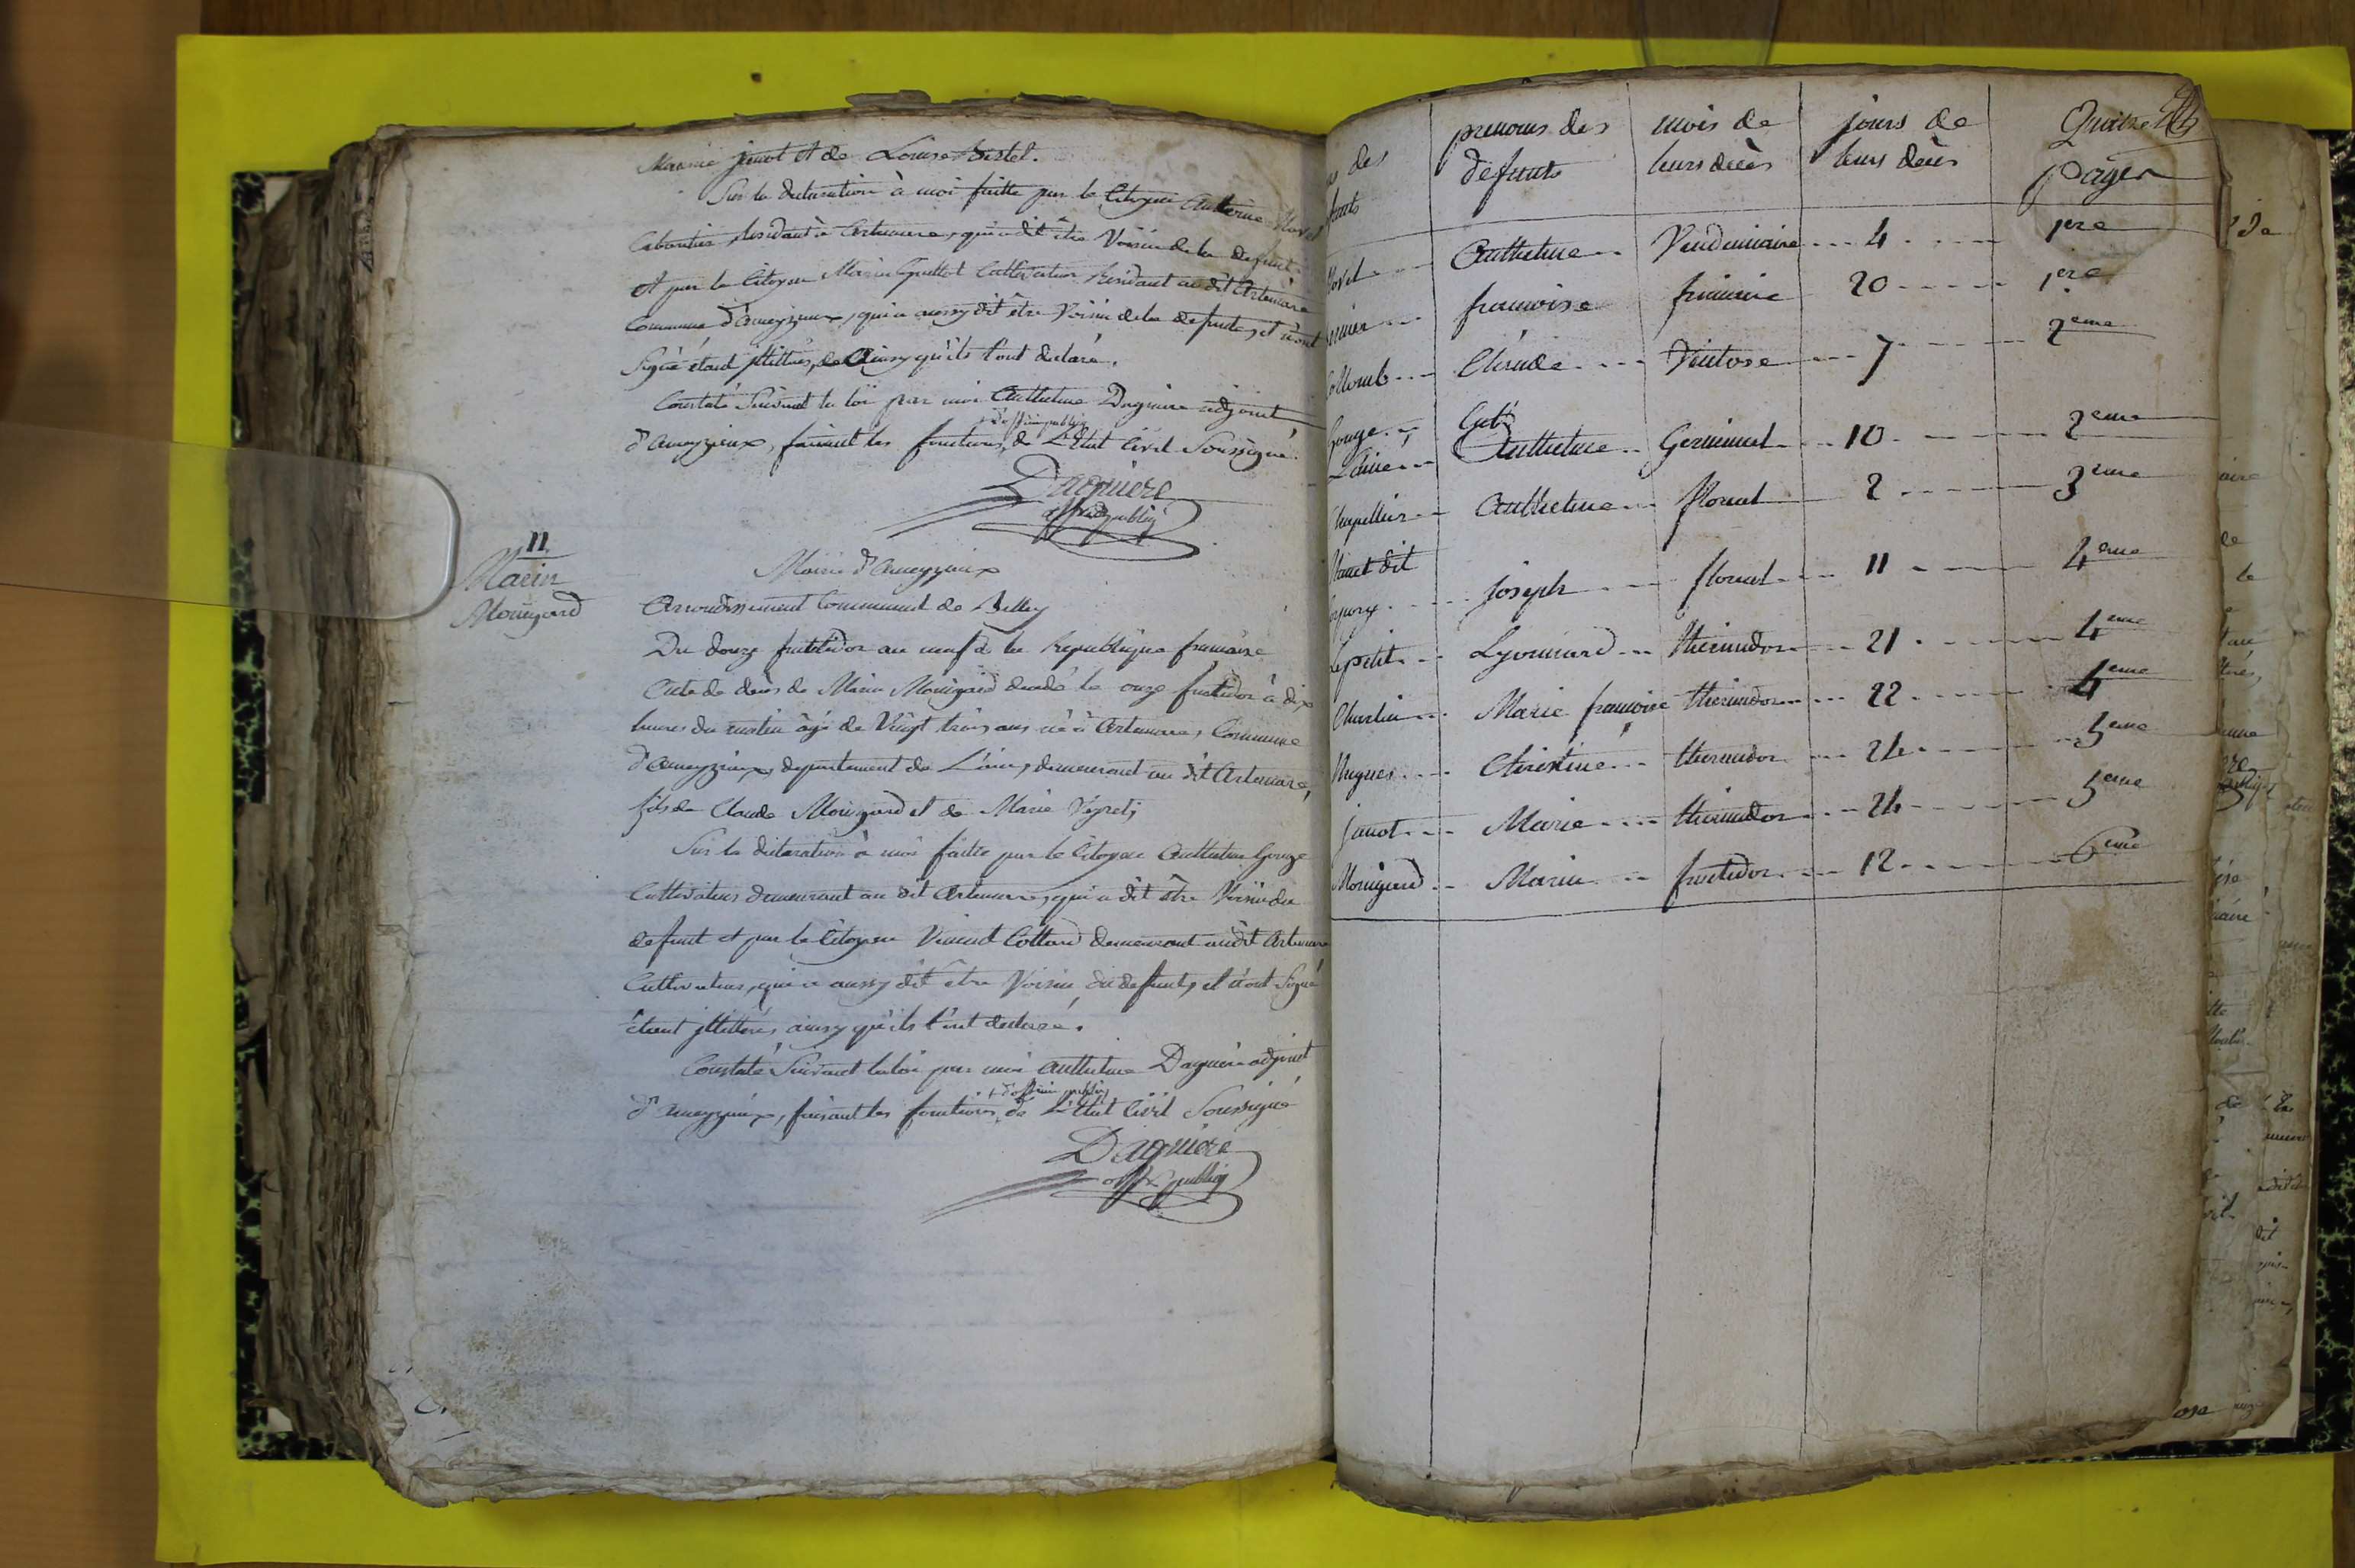 Marie janot et de Louise Bistel.
Sur la declaration à moi faitte par le Citoyen Anthelme
résidant à Artemare, qui a dit être Voisin de la defunte
et par le Citoyen Marin Guillot Cultivateur Résidant au dit Artemare
Commune d'ameyzieux, qui a aussy dit être Voisin de la defunte, et n'ont
Signé étant jllittrés, de Ainsy qu'ils l'ont declaré.
Constaté Suivant la loi par moi Anthelme Dagniere adjoint
+ d'officier public
d'ameyzieux, faisant les fonctions, de L'Etat Civil Soussigné.
Dagniere
off. public
11
Marin
Mouigard
Mairie d'ameyzieux
Arrondissement Communal de Belley
Du douze fructidor an neuf de la Republique francaise
Acte de décès de Marin Mouigard decedé le onze fructidor à dix
heures du matin âgé de Vingt trois ans né à Artemare, Commune
d'ameyzieux, departement de L'ain, demeurant au dit Artemare,
fils de Claude Mouigard et de Marie Veyret;
Sur la déclaration à moi faitte par le Citoyen Anthelme Gouge
Cultivateur demeurant au dit Artemare, qui a dit être Voisin du
defunt et par le Citoyen Vincent Cottard demeurant audit Artemare
Cultivateur, qui a aussy dit être Voisin du defunt, et n'ont Signé
étant jllittrés, ainsy qu'ils l'ont declaré.
Constaté Suivant la loi par moi anthelme Dagniere adjoint
+ d'officier public
d'ameyzieux, faisant les fonctions, de L'Etat Civil Soussigné
Dagniere
off. public
des prenoms des mois de jours de Quatre
defunts leurs decès leurs decès pages
Anthelme Vendemiaire 4 1ere
francoise frimaire 20 1ere
Collomb Claude Ventose 7 2eme
Gouge Cub
L'ainé Anthelme Germinal 10 2eme
Chapellier Anthelme floreal 2 3eme
dit
joseph floreal 11 4eme
Lepetit Lyonnard thermidor 21 4eme
Charlin Marie francoise thermidor 22 4eme
Hugues Christine thermidor 24 5eme
janot Marie thermidor 24 5eme
Mouigard Marin fructidor 12 6eme